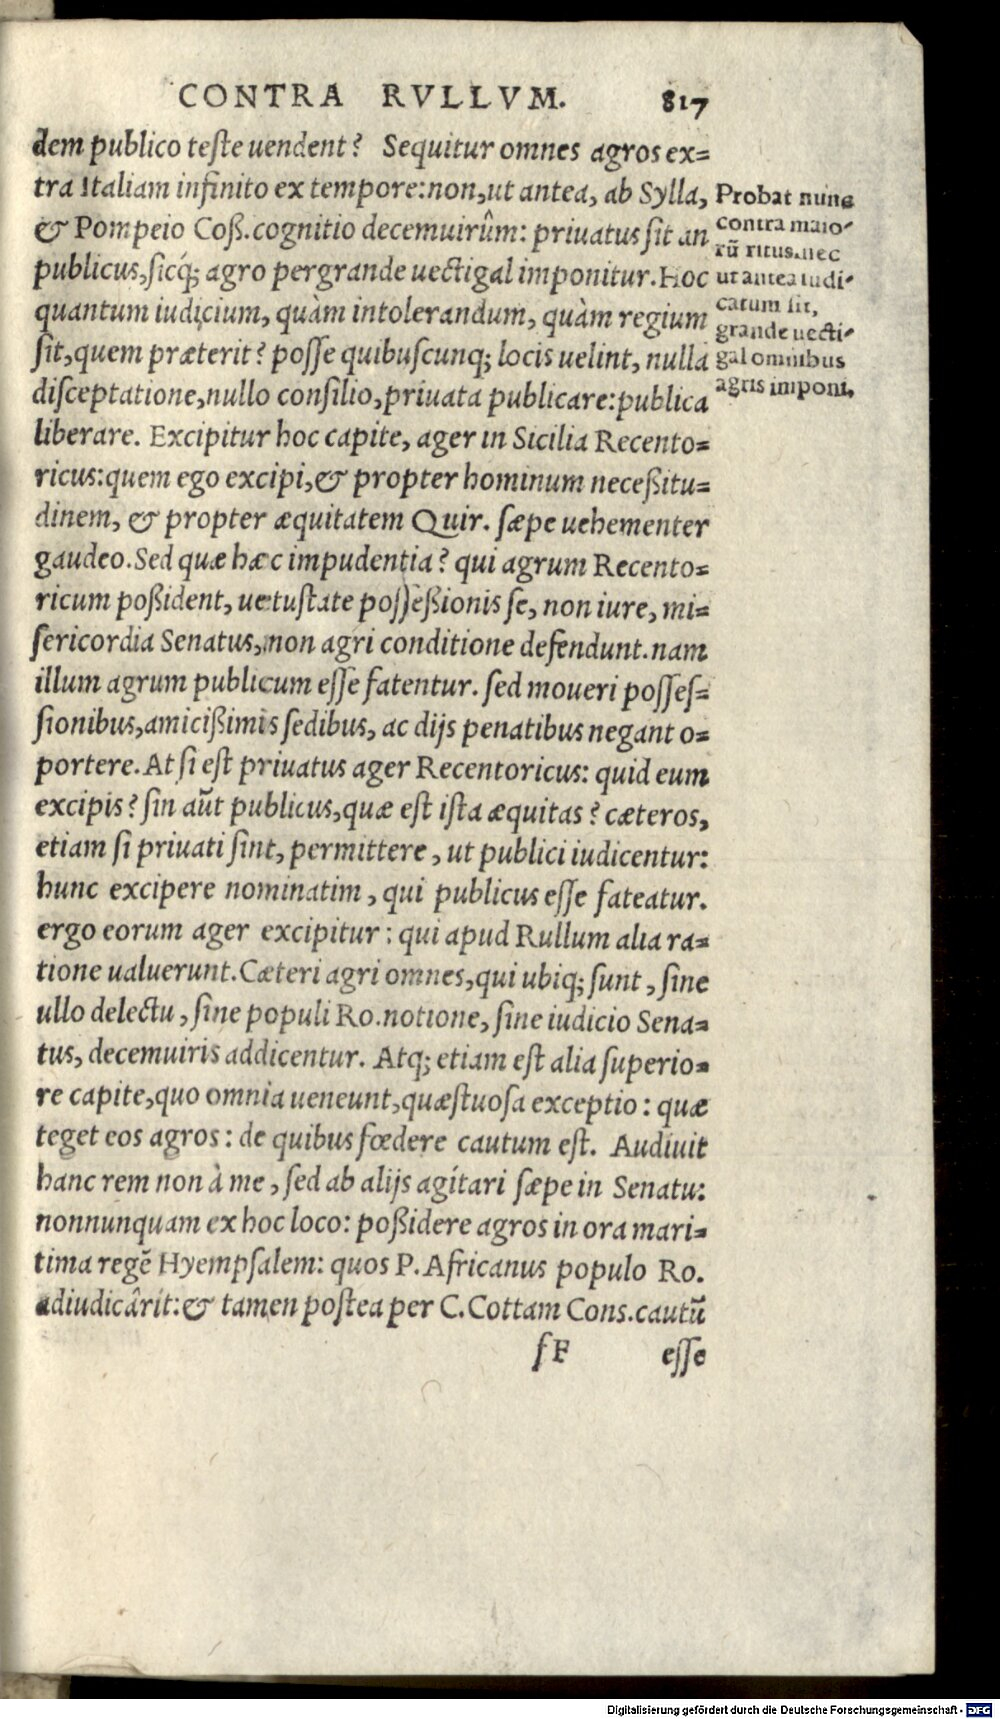 CONTRA RVLLVM. 817
dem publico teste uendent? Sequitur omnes agros ex=
tra Italiam infinito ex tempore: non, ut antea, ab Sylla,
& Pompeio Coß. cognitio decemuirûm: priuatus sit an
publicus, sicq́; agro pergrande uectigal imponitur. Hoc
quantum iudicium, quàm intolerandum, quàm regium
sit, quem præterit? posse quibuscunq; locis uelint, nulla
disceptatione, nullo consilio, priuata publicare: publica
liberare. Excipitur hoc capite, ager in Sicilia Recento=
ricus: quem ego excipi, & propter hominum neceßitu=
dinem, & propter æquitatem Quir. sæpe uehementer
gaudeo. Sed quæ hæc impudentia? qui agrum Recento=
ricum poßident, uetustate posseßionis se, non iure, mi=
sericordia Senatus, non agri conditione defendunt. nam
illum agrum publicum esse fatentur. sed moueri posses=
sionibus, amicißimis sedibus, ac dijs penatibus negant o=
portere. At si est priuatus ager Recentoricus: quid eum
excipis? sin aūt publicus, quæ est ista æquitas? cæteros,
etiam si priuati sint, permittere, ut publici iudicentur:
hunc excipere nominatim, qui publicus esse fateatur.
ergo eorum ager excipitur: qui apud Rullum alia ra=
tione ualuerunt. Cæteri agri omnes, qui ubiq; sunt, sine
ullo delectu, sine populi Ro. notione, sine iudicio Sena=
tus, decemuiris addicentur. Atq; etiam est alia superio=
re capite, quo omnia ueneunt, quæstuosa exceptio: quæ
teget eos agros: de quibus fœdere cautum est. Audiuit
hanc rem non à me, sed ab alijs agitari sæpe in Senatu:
nonnunquam ex hoc loco: poßidere agros in ora mari=
tima regē Hyempsalem: quos P. Africanus populo Ro.
adiudicârit: & tamen postea per C. Cottam Cons. cautū
fF esse
Probat nunc
contra maio-
rū ritus. nec
ut antea iudi-
catum sit,
grande uecti-
gal omnibus
agris imponi.
Digitalisierung gefördert durch die Deutsche Forschungsgemeinschaft - DFG